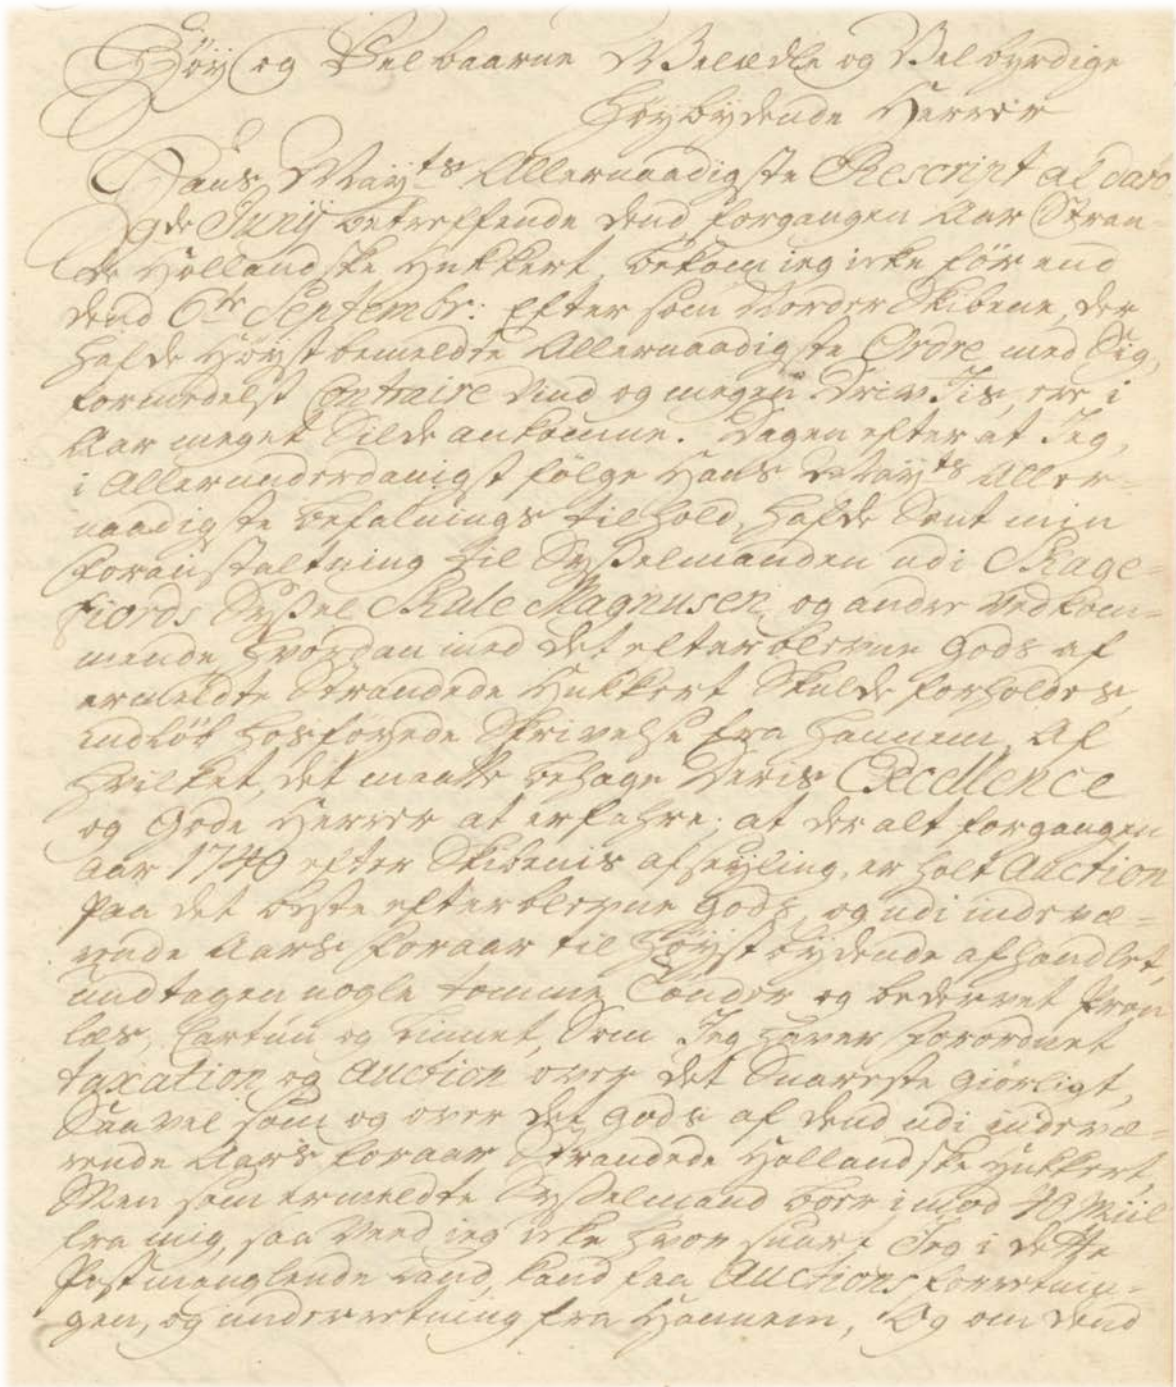 Høy og Vel baarne Welædle og Vel byrdige
Høybydende Herrer
Hans May.ts Allernaadigste Rescript af dato
9de Junij betreffende dend forgangen Aar Stran-
de Hollandske Hukkert, bekom ieg icke før end
dend 6te Septembr: Efter som Norder Skibene, der
hafde Høyst bemeldte Allernaadigste Ordre med Sig,
formedelst Contraire Vind og megen Driv Jis, ere i
Aar meget Silde ankomne. Dagen efter at Jeg,
i Allerunderdanigst følge Hans May.ts Aller-
naadigste befalnings tilhold, hafde Sent min
foranstaltning til Sysselmanden udi Skage-
fiords Syssel Skule Magnusen, og andre Vedkom-
mende, hvordan med det efterblevne Gods af
ermeldte Strandede Hukkert Skulde forholdes,
indløb hosføyede Skrivelse fra hannem, Af
hvilket, det maatte behage Deris Excellence
og Gode Herrer at erfahre; at der alt forgangen
Aar 1740 efter Skibenis afseyling, er holt Auction
paa det beste efterblevne Gods, og udi indevæ-
rende Aars Foraar til Høystbydende afhandlet,
undtagen nogle tomme Tønder og bedervet
Cartun og Linnet, Som Jeg haver forordnet
taxation og Auction over det Snareste giørligt,
Saavel som og over det Gods af dend udi indevæ-
rende Aars foraar Strandede Hollandske Hukkert,
Men som ermeldte Sysselmand boer imod 40 Miil
fra mig, saa Veed ieg icke hvor snart Jeg i dette
Postmanglende Land, kand faa Auctions forretnin-
gen, og underretning fra Hannem, Og om dend